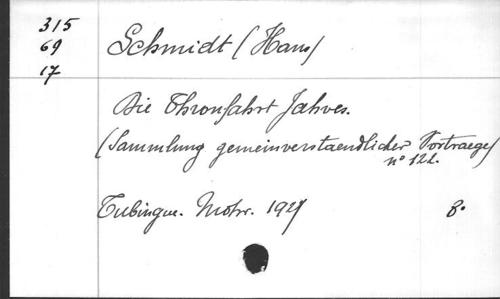 315
69
17
Schmidt (Hans)
Die Thronfahrt Jahves.
(Sammlung gemeinverstaendlicher Vortraege)
n° 122.
Tubingue. Mohr. 1927
8°